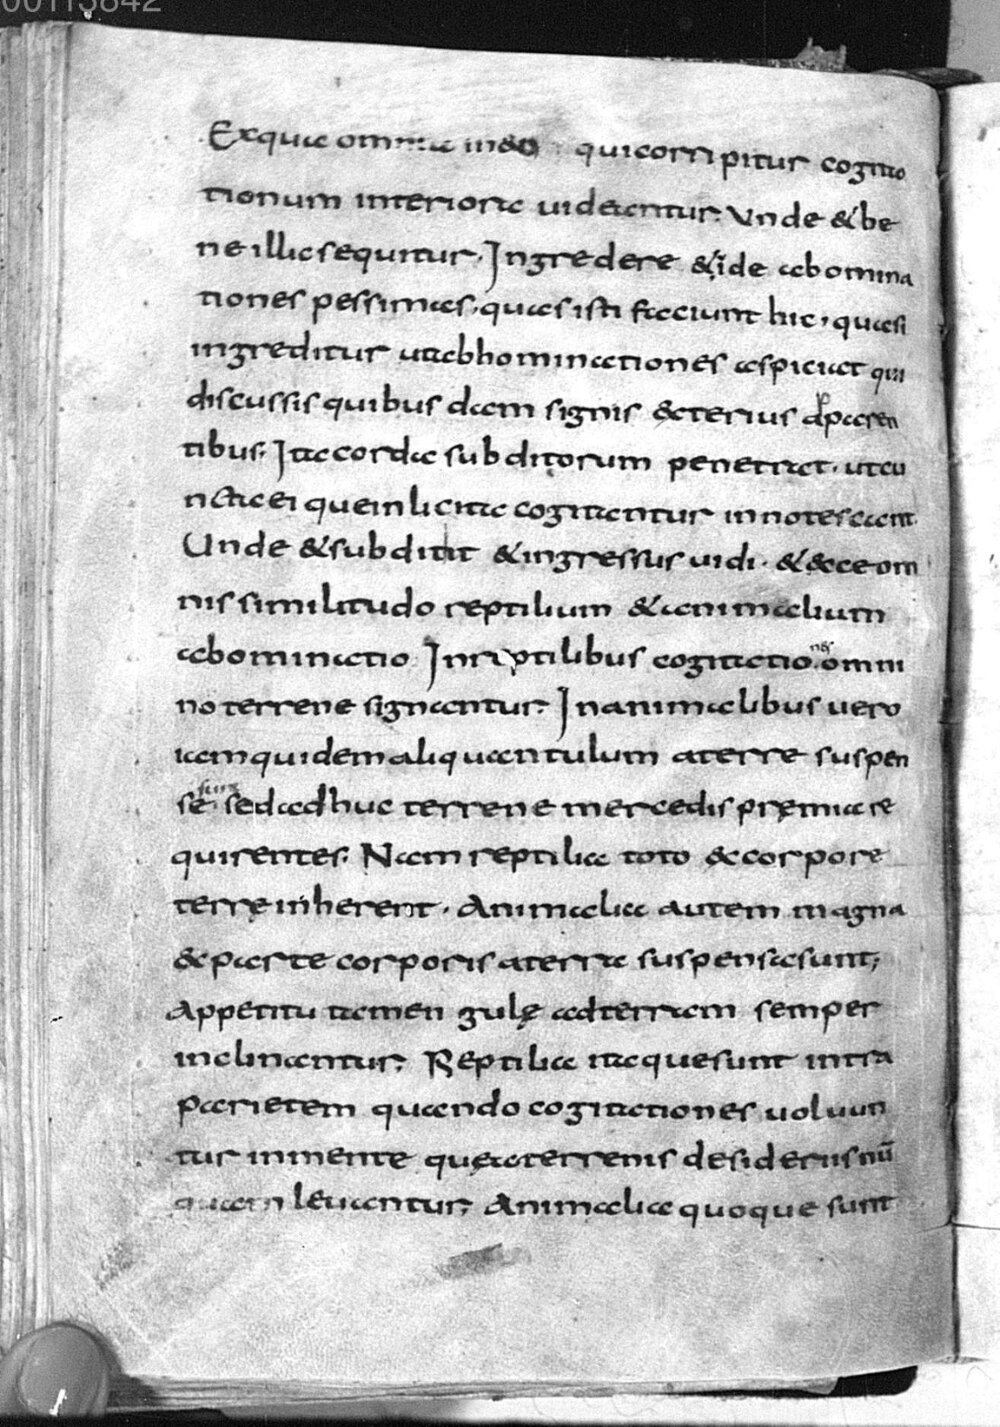 00113842
Exqua omnia in eo qui corripitur cogita
tionum interiora uideantur. Vnde & be
ne illic sequitur. Ingredere & uide abomina
tiones pessimas, quas isti faciunt hic, quasi
ingreditur ut abhominationes aspiciat qui
discussis quibusdam signis exterius apparen
tibus. Ita corda subditorum penetrat. ut cu
ncta ei que inlicita cogitantur innotescant.
Unde & subditit & ingressus uidi. & ecce om
nis similitudo reptilium & animalium
abominatio. In reptilibus cogitationes omni
no terrene signantur. In animalibus uero
iam quidem aliquantulum a terre suspen
se sed adhuc terrene mercedis premia re
quirentes. Nam reptilia toto ex corpore
terrę inherent. Animalia autem magna
ex parte corporis a terra suspensa sunt;
Appetitu tamen gulę ad terram semper
inclinantur. Reptilia itaque sunt intra
parietem quando cogitationes uoluun
tur in mente quę a terrenis desideriis nū
quam leuantur. Animalia quoque sunt